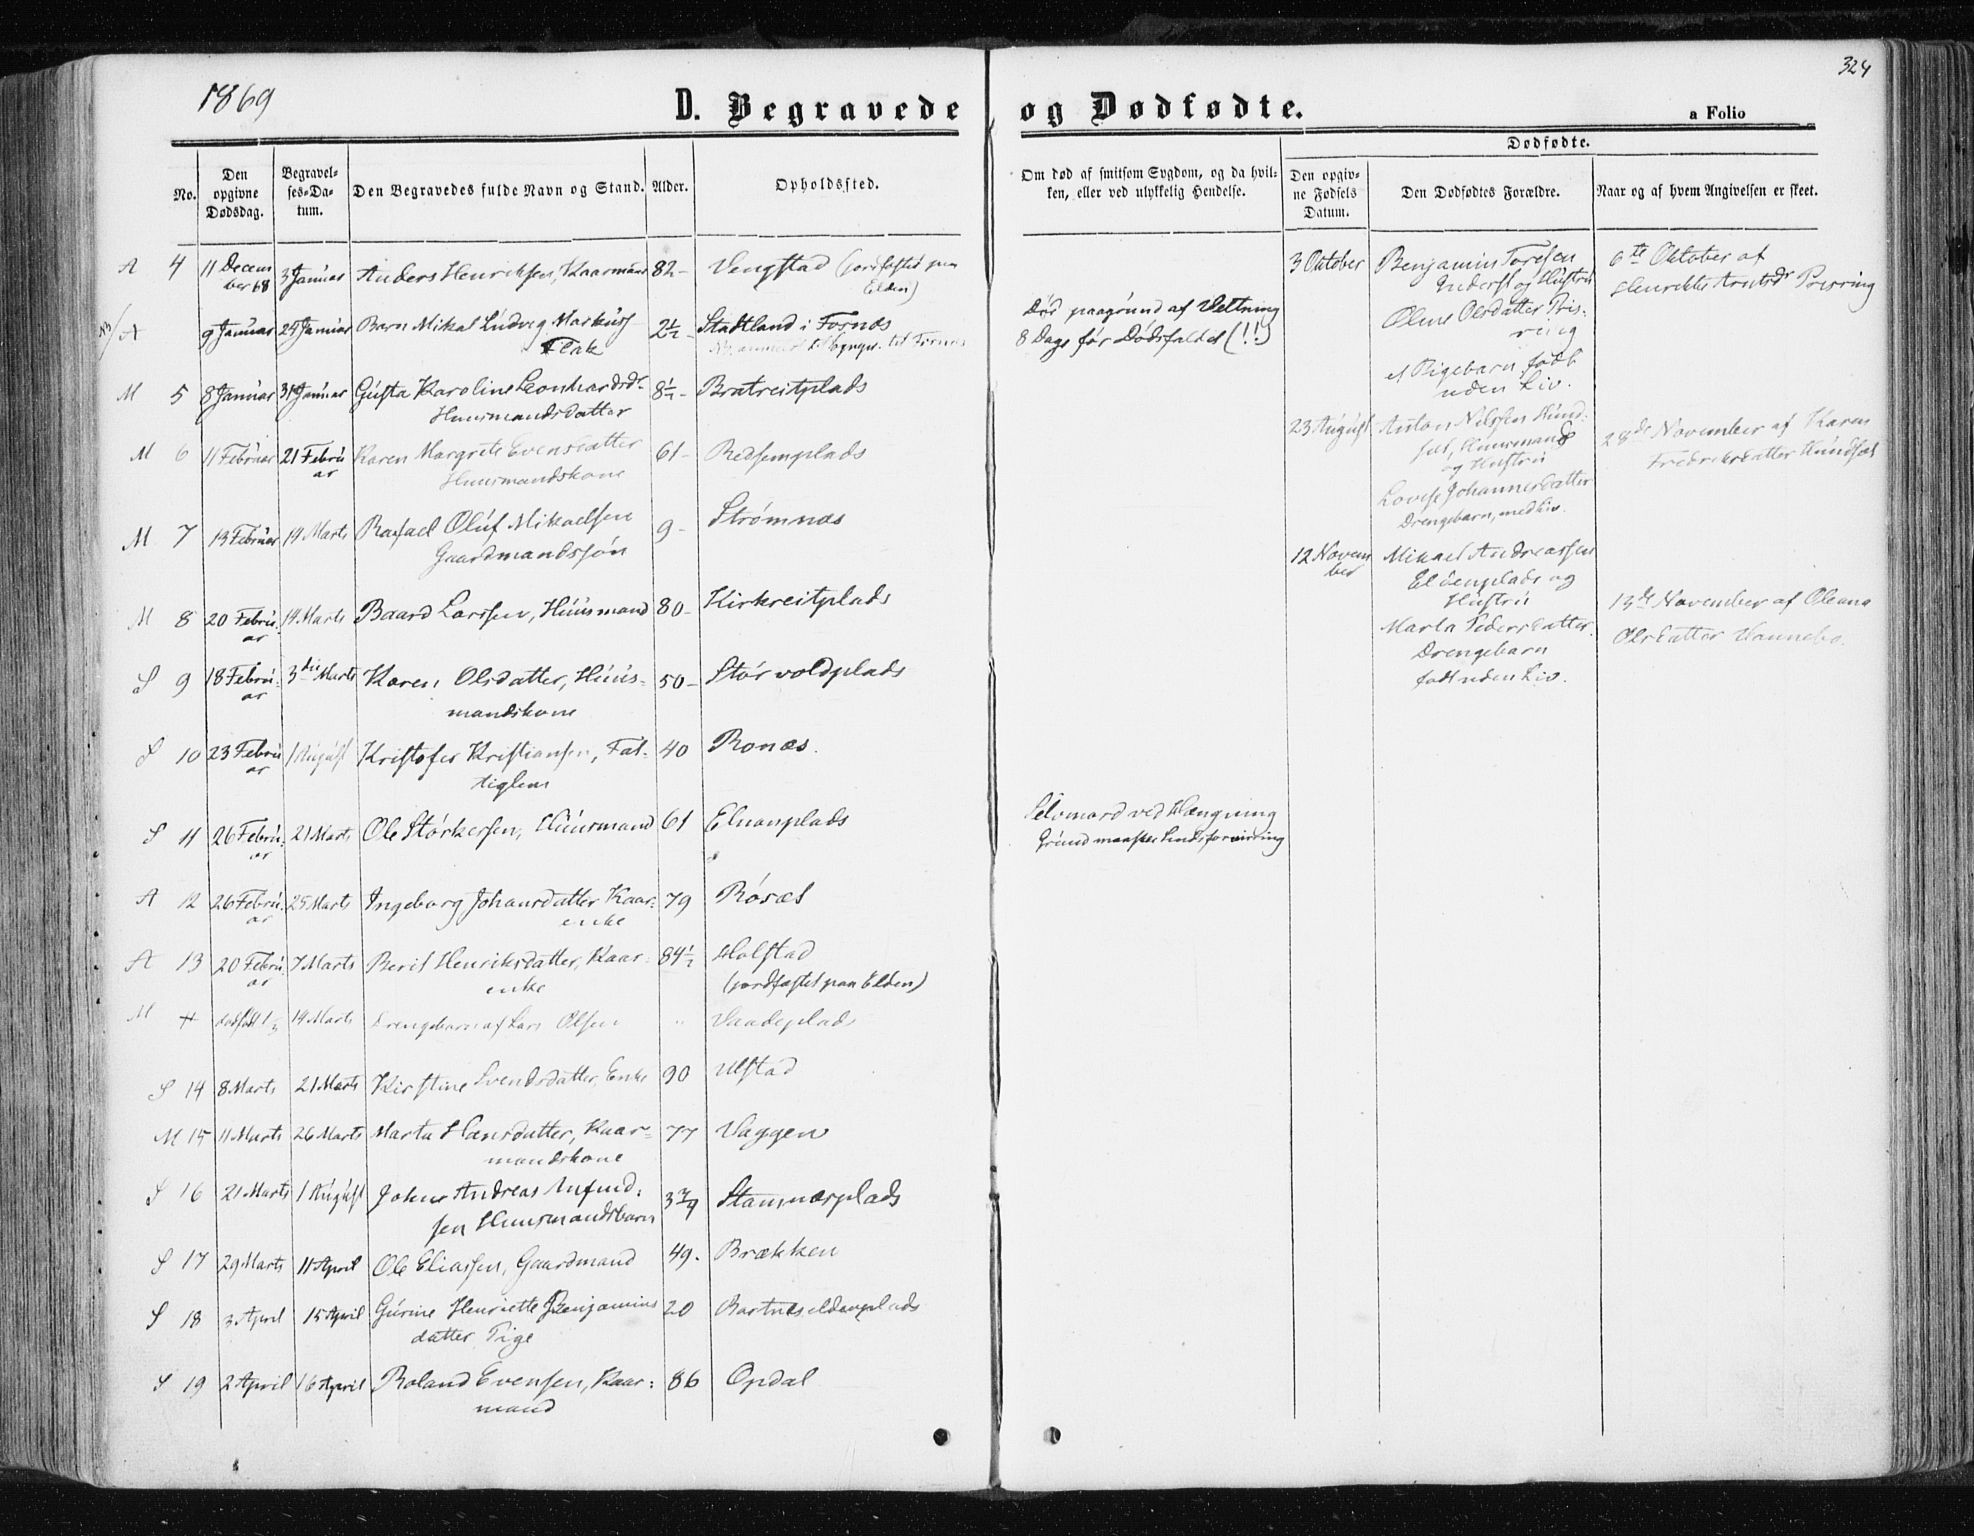 1869
324
D. Begravede og Dødfødte.
a Folio
No.
Den opgivne Dødsdag.
Begravelses-Datum.
Den Begravedes fulde Navn og Stand.
Alder.
Opholdssted.
Om død af smitsom Sygdom, og da hvilken, eller ved ulykkelig Hendelse.
Dødfødte.
Den opgivne Fødsels Datum.
Den Dødfødtes Forældre.
Naar og af hvem Angivelsen er skeet.
A 4 11 December 68 3 Januar Anders Henriksen, Kaarmand 82 Vengstad (jordfæstet paa Elden)
A 9 Januar 24 Januar Barn Mikal Ludvig Markuss Flak 2½ Stadtland i Fosnæs
Død paagrund af Veltning
8 Dage før Dødsfaldet (!!)
M 5 8 Januar 31 Januar Gusta Karoline Leonhardsdr Huusmandsdatter 8½ Bratreitplads
M 6 11 Februar 21 Februar Karen Margrete Evensdatter Huusmandskone 61 Redsemplads
M 7 13 Februar 14 Marts Rafael Oluf Mikaelsen Gaardmandssøn 9 Strømnæs
M 8 20 Februar 14 Marts Baard Larssen, Huusmand 80 Kirkreitplads
S 9 18 Februar 3die Marts Karen Olsdatter, Huusmandskone 50 Storvoldplads
S 10 23 Februar 1 August Kristofer Kristiansen, Fattiglem 40 Bonæs.
S 11 26 Februar 21 Marts Ole Størkersen, Huusmand 61 Elnanplads
Selvmord ved Hængning
Grund maaskee Sindsforvirring
A 12 26 Februar 25 Marts Ingeborg Johansdatter Kaarenke 79 Røsæt
A 13 20 Februar 7 Marts Berit Henriksdatter, Kaarenke 84½ Holstad (jordfæstet paa Elden)
M + dødfødt 14 Marts Drengebarn af Lars Olsen " Vaadeplads
S 14 8 Marts 21 Marts Kirstine Svendsdatter, Enke 90 Ulstad
M 15 11 Marts 26 Marts Marta Hansdatter, Kaarmandskone 77 Vaggen
S 16 21 Marts 1 August Johan Andreas Anfindsen Huusmandsbarn 3 Stamnesplads
S 17 29 Marts 11 April Ole Eliassen, Gaardmand 49. Brækken
S 18 3 April 15 April Gurine Henriette Benjaminsdatter Pige 20 Bartneseldenplads
S 19 2 April 16 April Roland Evensen, Kaarmand 86 Opdal
3 October Benjamin Toresen Inderst og Hustru Oline Olsdatter et Pigebarn født uden Liv.
6te Oktober af Henrikke Arntsdr
23 August Anton Nilssen Hundset, Huusmand og Hustru Lovise Johannesdatter Drengebarn, med Liv.
28de November af Karen Fredriksdatter Hundsæt
12 November Mikael Andreassen Eldenplads og Hustru Marta Pedersdatter. Drengebarn født uden Liv.
13de November af Oleana Olsdatter Vannebo.